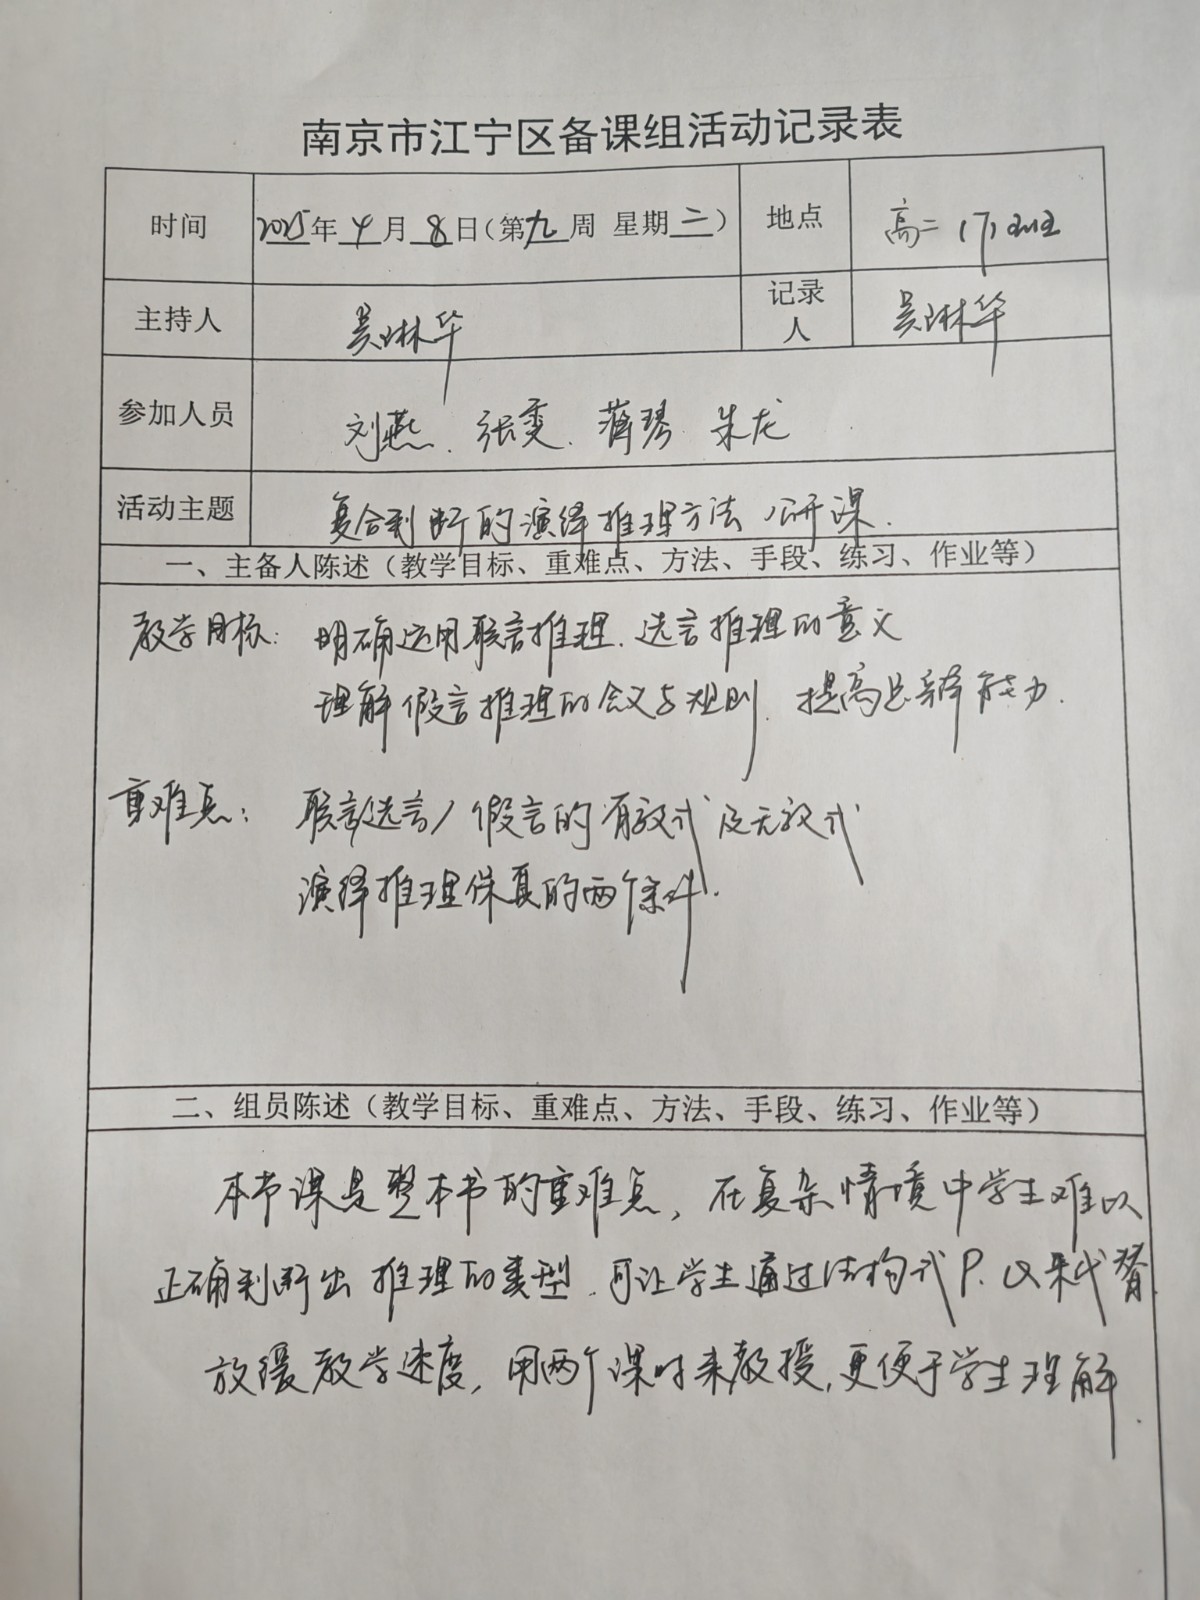 南京市江宁区备课组活动记录表
时间 2025年4月8日（第九周 星期二） 地点 高二（7）班
主持人 吴琳华 记录人 吴琳华
参加人员 刘燕、张雯、蒋琴 朱龙
活动主题 复合判断的演绎推理方法 公开课.
一、主备人陈述（教学目标、重难点、方法、手段、练习、作业等）
教学目标：明确运用联言推理、选言推理的意义
理解假言推理的含义与规则、提高思辨能力.
重难点：联言/选言/假言的有效式及无效式
演绎推理保真的两个条件.
二、组员陈述（教学目标、重难点、方法、手段、练习、作业等）
本节课是整本书的重难点，在复杂情境中学生难以
正确判断出推理的类型.可让学生通过结构式P、Q来代替
放缓教学速度，用两个课时来教授，更便于学生理解.